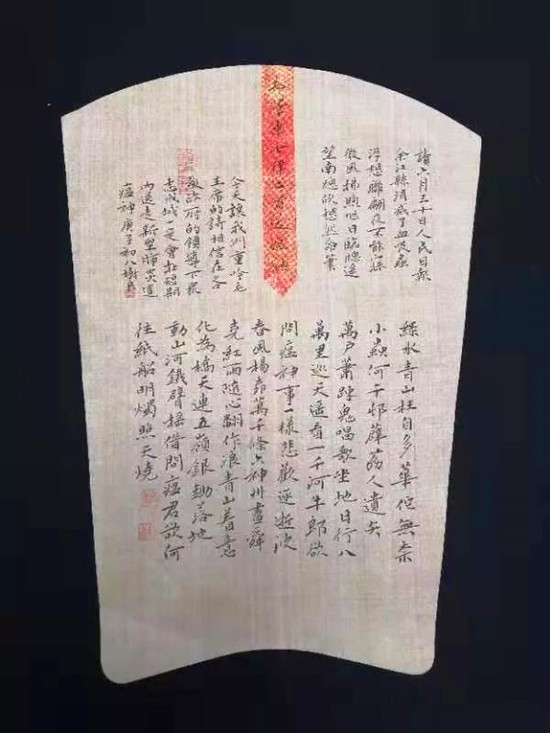 毛澤東七律二首送瘟神
讀六月三十日人民日報
余江縣消滅了血吸蟲
浮想聯翩夜不能寐
微風拂煦旭日臨牕遥
望南然命筆
今天讓我們重吟毛
主席的詩相信在各
級政府的領導下眾
志成城一定會在短期
内送走新型肺炎這
瘟神庚子初八樹
綠水青山枉自多華佗無奈
小蟲何千邨薜荔人遺矢
萬戶蕭踈鬼唱歌坐地日行八
萬里巡天遥看一千河牛郎欲
問瘟神事一樣悲歡逐逝波
春風楊柳萬千條六神州盡舜
堯紅雨隨心翻作浪青山着意
化為橋天連五嶺銀鋤落地
動山河鐵臂摇借問瘟君欲何
往紙船明燭照天燒